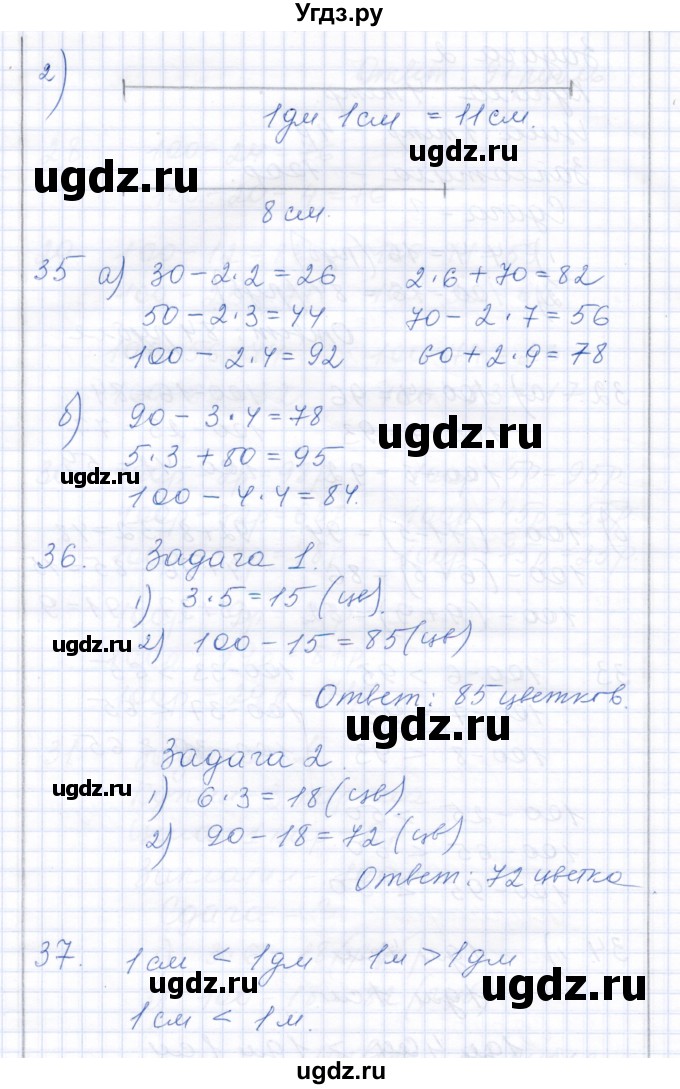 Угдз.ру
2)
1дм 1см = 11см.
ugdz.ru
ugdz.ru
8 см.
35 а) 30 – 2·2 = 26 2·6 + 70 = 82
50 – 2·3 = 44 70 – 2·7 = 56
100 – 2·4 = 92 60 + 2·9 = 78
б) 90 – 3·4 = 78
ugdz.ru
5·3 + 80 = 95
ugdz.ru
100 – 4·4 = 84.
36. Задача 1.
1) 3·5 = 15 (цв).
2) 100 – 15 = 85 (цв)
ugdz.ru
ugdz.ru
Ответ: 85 цветков.
ugdz.ru
Задача 2.
ugdz.ru
1) 6·3 = 18 (цв).
2) 90 – 18 = 72 (цв)
Ответ: 72 цветка
37. 1см < 1дм 1м > 1дм
ugdz.ru
ugdz.ru
1см < 1м.
ugdz.ru